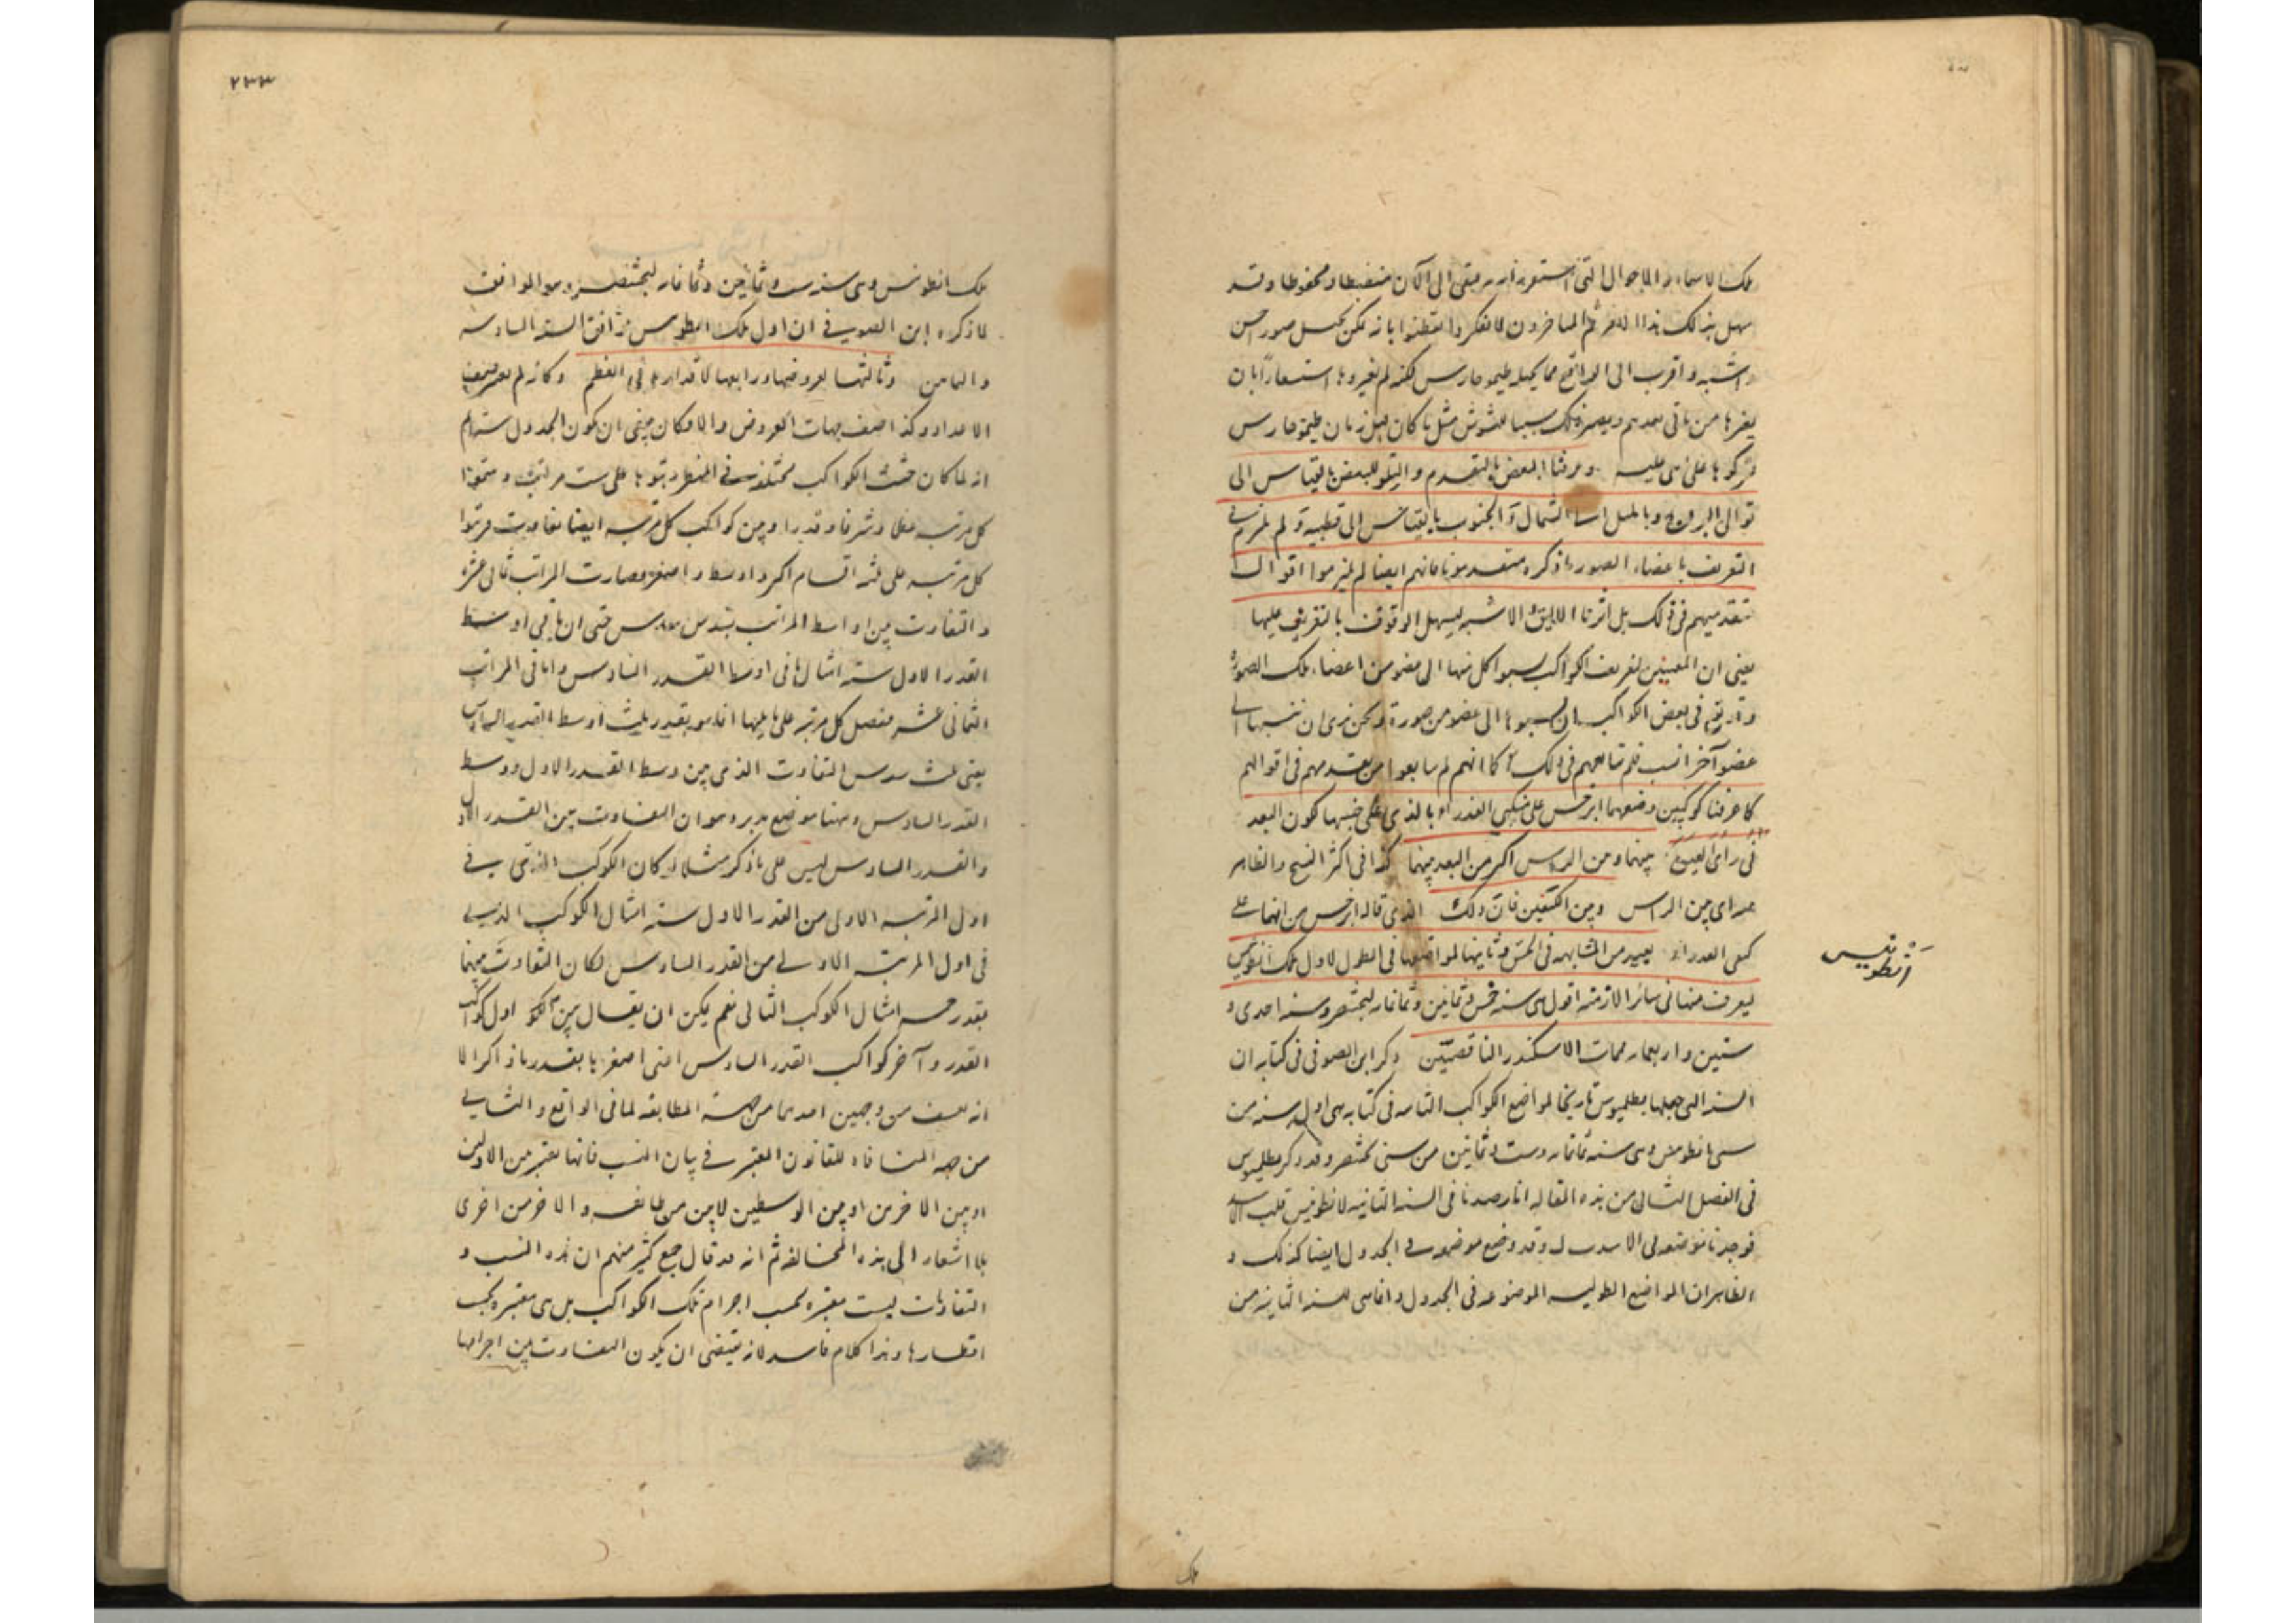 تلك الاسماء والاحوال التى استقر رايه يبقى الى الآن منضبطا ومحفوظا وقد
سهل بذلك هذا الامر ثم المتاخرون لما تفكروا تفطنوا بانه يمكن تخيل صور احسن
واشبه واقرب الى الواقع مما تخيله طيموخارس لكنهم لم يغيروها استشعارا بان
يغيرها من ياتى بعدهم ويصير ذلك سببا للتشوش مثل ما كان قبل زمان طيموخارس
فتركوها على ما هى عليه وعرفنا البعض بالتقدم والتلو للبعض بالقياس الى
توالى البروج وبالميل الى الشمال والجنوب بالقياس الى قطبيه ولم نلتزم فى
التعريف باعضاء الصور ما ذكره متقدمونا فانهم ايضا لم يلتزموا اقوال
متقدميهم فى ذلك بل اثرنا الاليق الاشبه ليسهل الوقوف بالتعريف عليها
يعنى ان المعينين لتعريف الكواكب نسبوا كل منها الى عضو من اعضاء تلك الصورة
وقد يقع فى بعض الكواكب ان نسبوها الى عضو من صورة ونحن نرى ان ننسبها الى
عضو آخر انسب فلم نتابعهم فى ذلك كما انهم لم يتابعوا من تقدمهم فى اقوالهم
كما عرفنا كوكبين وضعهما ابرخس على منكبى العذراء بالذى على جنبيها لكون البعد
فى راى العين بينهما ومن الراس اكبر من البعد بينهما كذا فى اكثر النسخ والظاهر
عند اى بين الراس وبين الكتفين فان ذلك الذى قاله ابرخس من انهما على
كتفى العذراء بعيد من المشابهة فى الحس وثانيها لمواضعها فى الطول لاول ملك انطونيس
ليعرف منها فى سائر الازمنه اقول هى سنة خمس وثمانين وثمانمائه لبختنصر وسنه احدى و
ستين واربعمائه لممات الاسكندر الناقصتين وذكر ابن الصوفى فى كتابه ان
السنه التى جعلها بطلميوس تاريخا لمواضع الكواكب الثابته فى كتابه هى اول سنه من
سنى انطونس وهى سنه ثمانمائه وست وثمانين من سنى بختنصر وقد ذكر بطلميوس
فى الفصل الثانى من هذه المقاله انا رصدنا فى السنه الثانيه لانطونيس قلب الاسد
فوجدنا موضعه فى الاسد ب ل وقد وضع موضعه فى الجدول ايضا كذلك و
الظاهر ان المواضع الطوليه الموضوعه فى الجدول انما هى للسنه الثانيه من
انطونيس
ملك
٢٣٣
ملك انطونس وهى سنه ست وثمانين وثمانمائه لبختنصر وهو الموافق
لما ذكره ابن الصوفى فى ان اول ملك انطونس وافق السنه السادسه
والثامن وثالثها لعروضها ورابعها لاقدارها فى العظم وكانه لم يعتبر صف
الاعداد وكذا صف جهات العروض والا فكان ينبغى ان يكون الجدول سته ثم
انه لما كان جثث الكواكب مختلفه فى المنظر رتبوها على ست مراتب وسموا
كل مرتبه عظما وشرفا وقدرا وبين كواكب كل مرتبه ايضا تفاوت فرتبوا
كل مرتبه على ثلثه اقسام اكبر واوسط واصغر فصارت المراتب ثمانى عشره
والتفاوت بين اواسط المراتب بسدس سدس حتى ان ما فى اوسط
القدر الاول سته امثال ما فى اوسط القدر السادس واما فى المراتب
الثمانى عشر ففضل كل مرتبه على ما يليها انما هو بقدر ثلث اوسط القدر السادس
يعنى ثلث سدس التفاوت الذى بين وسط القدر الاول ووسط
القدر السادس وههنا موضع تدبر وهو ان التفاوت بين القدر الاول
والقدر السادس ليس على ما ذكر مثلا لو كان الكوكب الذى فى
اول المرتبه الاولى من القدر الاول سته امثال الكوكب الذى
فى اول المرتبه الاولى من القدر السادس لكان التفاوت بينهما
بقدر خمسه امثال الكوكب الثانى نعم يمكن ان يقال بين اول كواكب
القدر وآخر كواكب القدر السادس اعنى اصغرها بقدر ما ذكر الا
انه تعسف من وجهين احدهما من جهة المطابقه لما فى الواقع والثانى
من جهة المنافاة للقانون المعتبر فى بيان النسب فانها تعتبر من الاولين
او بين الاخرين او بين الوسطين لا بين من طائفه والاخر من اخرى
بلا اشعار الى هذه المخالفه ثم انه قد قال جمع كثير منهم ان هذه النسب و
التفاوتات ليست معتبره بحسب اجرام تلك الكواكب بل هى معتبره بحسب
اقطارها وهذا كلام فاسد لانه يقتضى ان يكون التفاوت بين اجرامها